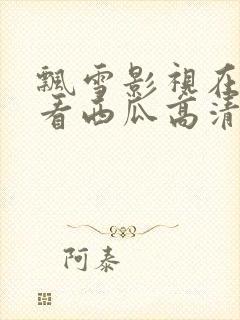 飄雪影視在
看西瓜高清
阿泰